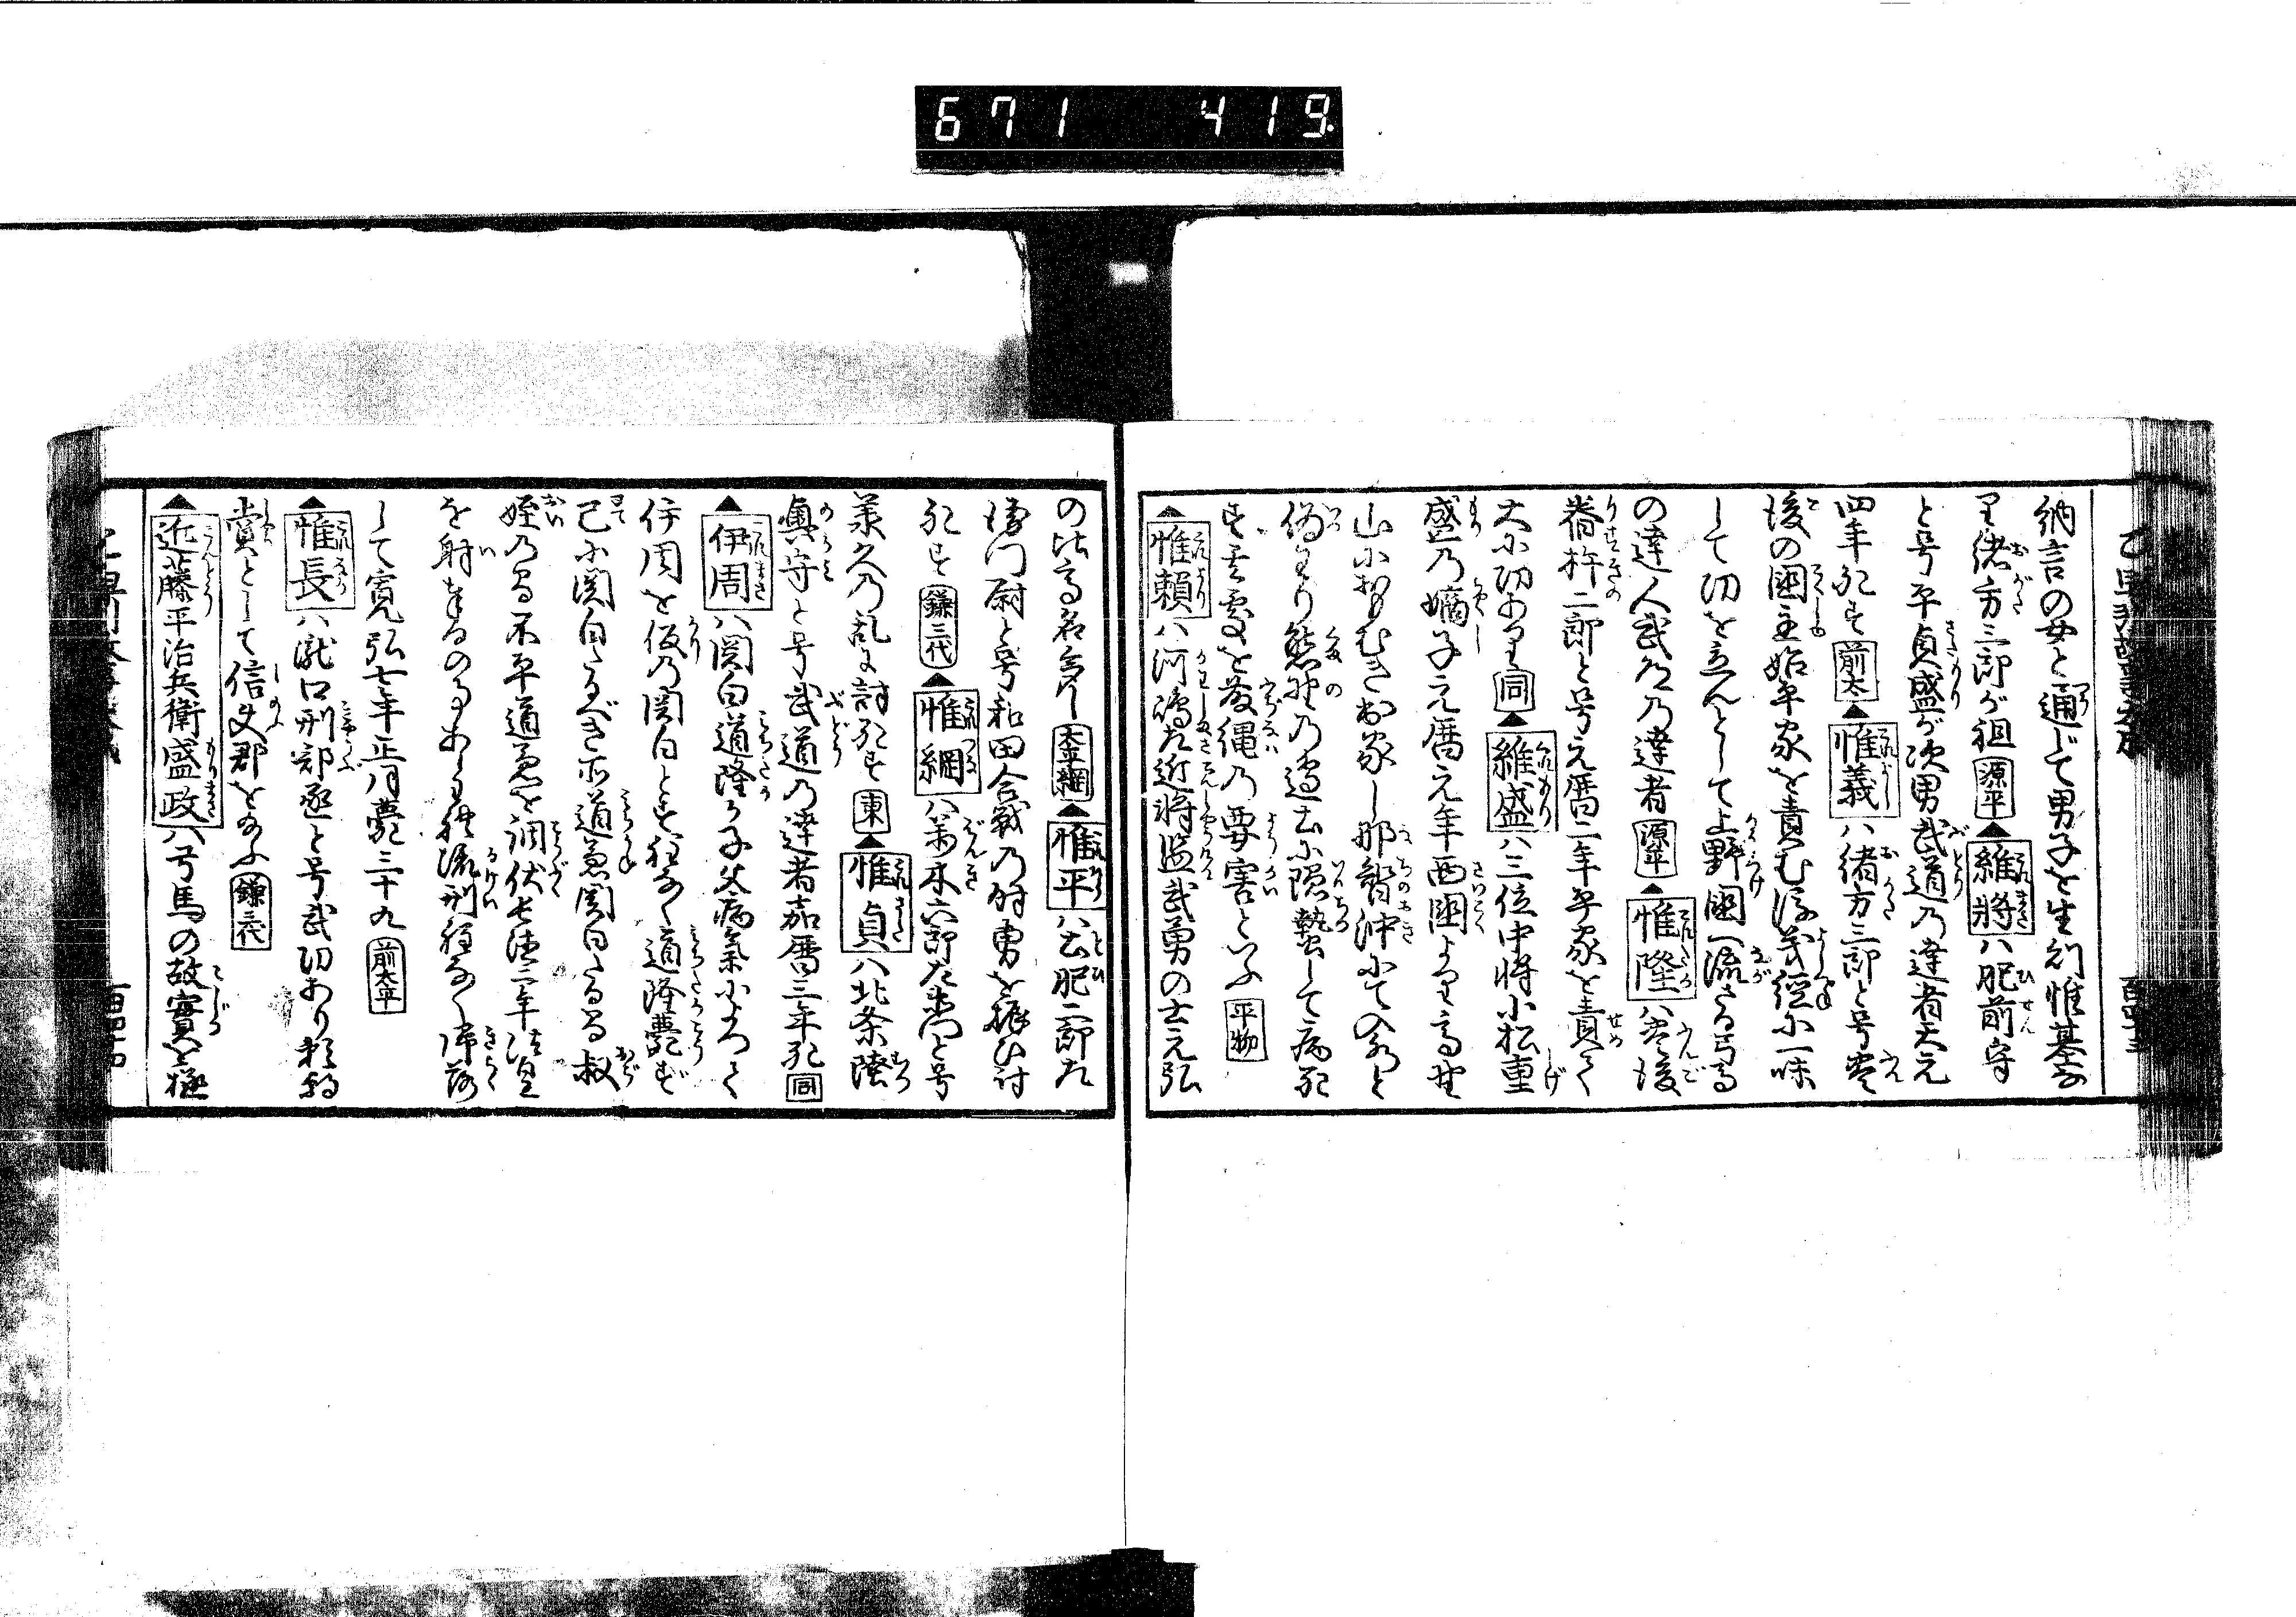 671 419
納言の女と通じて男子を生り惟基な
り緒方三郎が祖 源平 ▲維將ハ肥前守
と号平貞盛が次男武道乃達者天元
四年死す 前太 ▲惟義ハ緒方三郎と号豊
後の國主始平家を責む後義経に一味
して切を立んとして上野國一流さる弓馬
の達人武道乃達者 源平 ▲惟隆ハ豊後
臼杵二郎と号元暦二年平家を責て
大に功あり 同 ▲維盛ハ三位中将小松重
盛乃嫡子元暦元年西國より高野
山におもむき出家し那智沖にて入水と
偽り熊野乃辺土に隠蟄して病死
す其処を藤縄乃要害といふ 平物
▲惟頼ハ河嶋左近将監武勇の士元弘
の比高名多し 太平綱 ▲惟平ハ土肥二郎左
衛門尉と号和田合戦乃時勇を振ひ討
死す 鎌三代 ▲惟綱ハ番木六郎左衛門と号
承久乃乱に討死す 東 ▲惟貞ハ北条陸
奥守と号武道乃達者嘉暦三年死 同
▲伊周ハ関白道隆の子父病氣によつて
伊周を仮乃関白とす程なく道隆薨ず
已に関白たるべき所道兼関白たる叔
姪乃間不平道兼を調伏す長徳二年法皇
を射奉るの事あり其流刑程なく帰洛
して寛弘七年正月薨三十九 前太平
▲惟長ハ瀧口刑部丞と号武功あり頼朝
賞として信夫郡を給ふ 鎌三代
▲近藤平治兵衛盛政ハ弓馬の故實を極